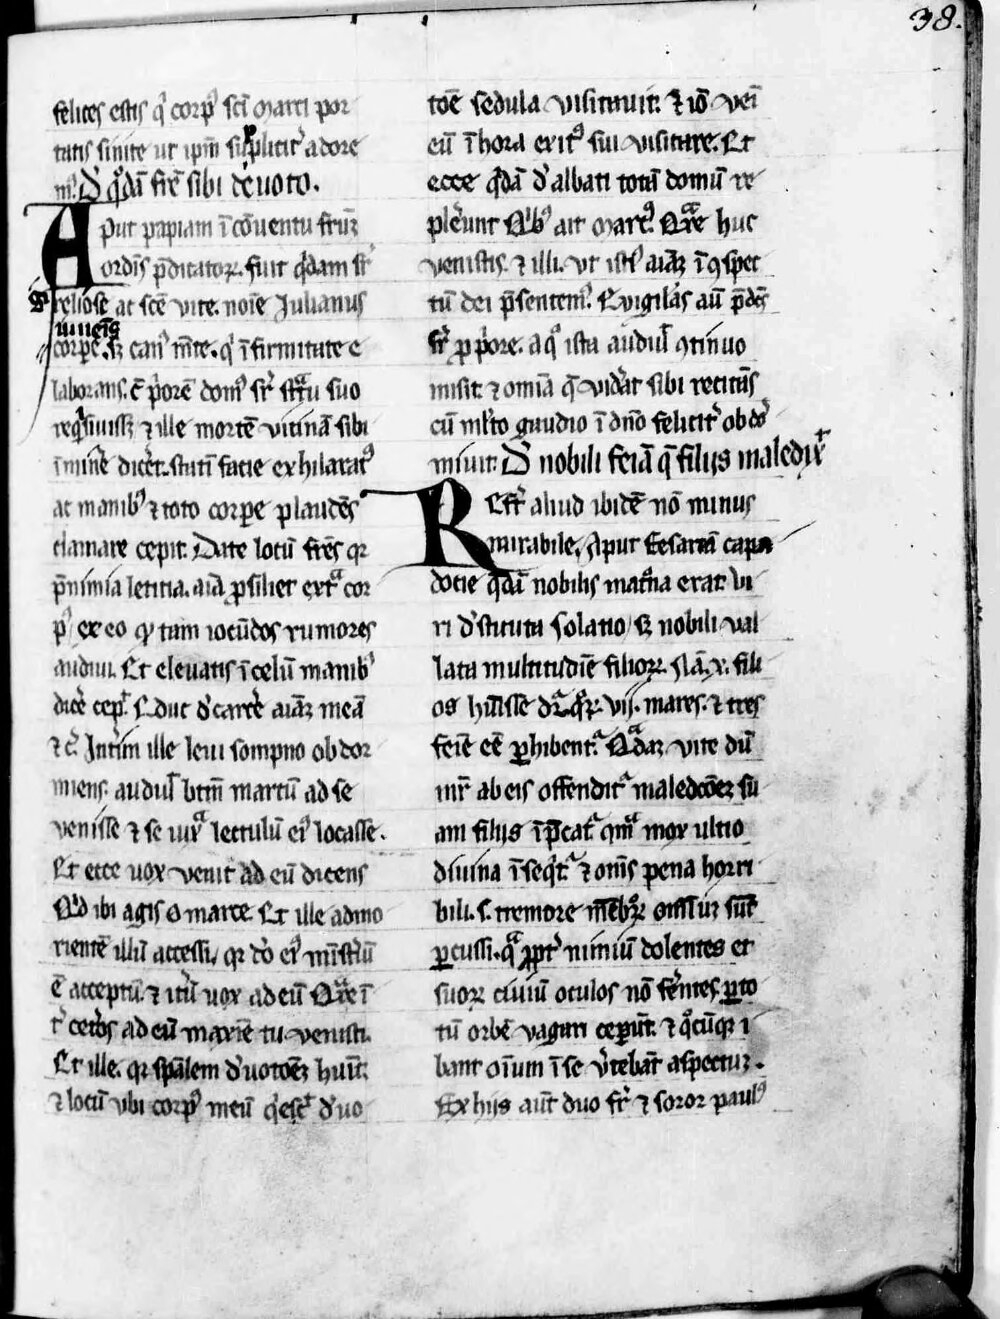 38.
felices estis qi corpꝰ scī marci por
tatis sinite ut ipm̄ supplicitr̄ adore
mꝰ. D̄ qͥdā frē sibi deuoto.
Aput papiam ī cōuentu frūꝫ
ordīs p̄dicatoꝝ. fuit qͥdam fr̄
religiose ac scē vite. noīe Julianus
iuuenis
corpe. sꝫ canꝰ mēte. qͥ ī firmitate e
laborans. ē p̄orē domꝰ fr̄ statu suo
reqͥsiuissꝫ ⁊ ille mortē vicinā sibi
īminē dicēt. statī facie exhilaratꝰ
ac manibꝰ ⁊ toto corpe plaudēs
clamare cepit. Date locū frēs qꝛ
p̄nimia letitia. aīa ꝓsiliet ext̄ cor
pꝰ ex eo ꝙ tam iocūdos rumores
audiui. Et eleuatis ī celū manibꝰ
dicē cep̄. Educ d̓ carcē aīaꝫ meā
⁊ c̄. Int̄im ille leui sompno obdor
miens. audīt btm̄ marcū ad se
venisse ⁊ se iuxͣ lectulū eiꝰ locasse.
Et ecce uox venit ad eū dicens
Qͥd ibi agis o marce. Et ille ad mo
rientē illū accessi, qꝛ dō eiꝰ mīst̄iū
ē acceptū. ⁊ it̄ū uox ad eū Qͣre ī
t̄ cetōs ad eū maxīe tu venisti.
Et ille. qꝛ spālem d̓uotōeꝫ huīt
⁊ locū ubi corpꝰ meū qͥescͭ d̓uo
tōe sedula visitauit. ⁊ iō venī
eū ī hora exitꝰ sui visitare. Et
ecce qͥdā d̓ albati totā domū re
pleūnt Qͥbꝰ ait marcꝰ. Qͣre huc
venistis. ⁊ illi. ut istiꝰ aīaꝫ ī ꝯspec
tū dei p̄sentemꝰ. Euigilās aū p̄dcs
fr̄ ꝓ p̄ore. a qͦ ista audiuī ꝯtinuo
misit ⁊ omīa q̄ vidāt sibi recitās
cū mlͭo gaudio ī dn̄o felicitr̄ obdoͬ
miuit. D̄ nobili feīa q̄ filijs maledixͭ
Reffr̄ aliud ibidē nō minus
mirabile, Aput Cesariā capa
docie qͥdā nobilis matͦna erat vi
ri d̓stituta solatio, sꝫ nobili val
lata multitudīe filioꝝ. Nā .x. fili
os hūisse dr̄. qͦꝝ .vij. mares. ⁊ tres
feīe eē ꝑhibentͬ. Qͣdaꝫ vite dū
mr̄ ab eis offenditͬ maledcōeꝫ su
am filijs īp̄catͬ qͣm mox ultio
diuina ī seqͥtͬ ⁊ om̄s pena horri
bili .s. tremore mēbꝝ omīuꝫ sūt
ꝑcussi. qͣ ꝓpt̄ nimiū dolentes et
suoꝝ ciuiū oculos nō fēntes, ꝑ to
tū orbē vagari ceperūt. ⁊ qͦcūqꝫ i
bant oīum ī se v̓tebāt aspectuꝫ.
Ex hijs aūt duo fr̄ ⁊ soror paulꝰ